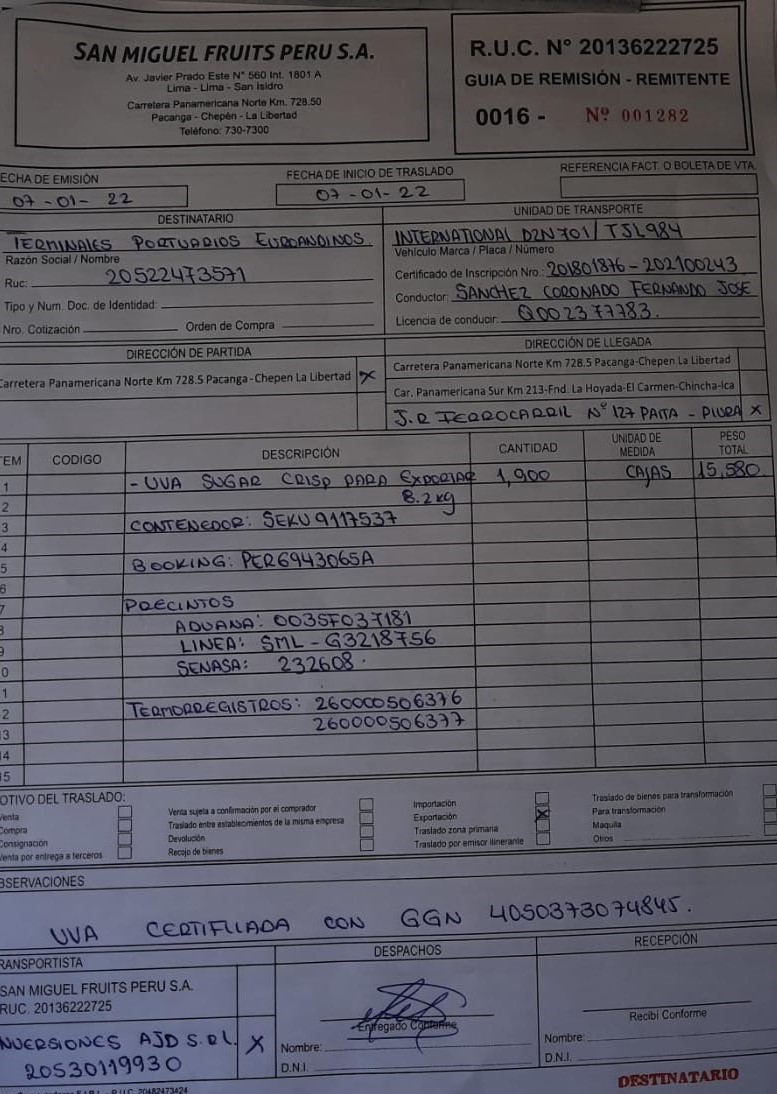 SAN MIGUEL FRUITS PERU S.A.
Av. Javier Prado Este N° 560 Int. 1801 A
Lima - Lima - San Isidro
Carretera Panamericana Norte Km. 728.50
Pacanga - Chepén - La Libertad
Teléfono: 730-7300
R.U.C. N° 20136222725
GUIA DE REMISIÓN - REMITENTE
0016 - Nº 001282
ECHA DE EMISIÓN
07-01-22
FECHA DE INICIO DE TRASLADO
07-01-22
REFERENCIA FACT. O BOLETA DE VTA.
DESTINATARIO
TERMINALES PORTUARIOS EUROANDINOS
Razón Social / Nombre
Ruc: 20522473571
Tipo y Num. Doc. de Identidad:
Nro. Cotización Orden de Compra
UNIDAD DE TRANSPORTE
INTERNATIONAL D2N701/TJL984
Vehículo Marca / Placa / Número
Certificado de Inscripción Nro.: 201801876-202100243
Conductor: SANCHEZ CORONADO FERNANDO JOSE
Licencia de conducir: Q002377783.
DIRECCIÓN DE PARTIDA
Carretera Panamericana Norte Km 728.5 Pacanga-Chepen La Libertad X
DIRECCIÓN DE LLEGADA
Carretera Panamericana Norte Km 728.5 Pacanga-Chepen La Libertad
Car. Panamericana Sur Km 213-Fnd. La Hoyada-El Carmen-Chincha-Ica
J.R FERROCARRIL N° 127 PAITA - PIURA X
TEM CODIGO DESCRIPCIÓN CANTIDAD UNIDAD DE MEDIDA PESO TOTAL
1 - UVA SUGAR CRISP PARA EXPORTAR 1,900 CAJAS 15,580
2 8.2 kg
3 CONTENEDOR: SEKU9117537
4
5 BOOKING: PER6943065A
6
7 PRECINTOS
8 ADUANA: 0035F037181
9 LINEA: SML-G3218756
0 SENASA: 232608.
1
2 TERMORREGISTROS: 260000506376
3 260000506377
4
5
OTIVO DEL TRASLADO:
Venta
Compra
Consignación
Venta por entrega a terceros
Venta sujeta a confirmación por el comprador
Traslado entre establecimientos de la misma empresa
Devolución
Recojo de bienes
Importación
Exportación X
Traslado zona primaria
Traslado por emisor itinerante
Traslado de bienes para transformación
Para transformación
Maquila
Otros
BSERVACIONES
UVA CERTIFICADA CON GGN 4050373074845.
RANSPORTISTA
SAN MIGUEL FRUITS PERU S.A.
RUC. 20136222725
NVERSIONES AJD S.R.L. X
20530119930
DESPACHOS
Entregado Conforme
Nombre:
D.N.I.
RECEPCIÓN
Recibi Conforme
Nombre:
D.N.I.
R.U.C. 20482473424
DESTINATARIO